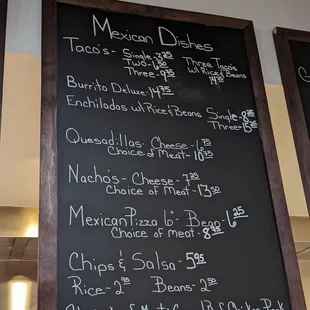 Mexican Dishes
Taco's - Single - 3.25
Two - 6.50 Three Taco's
Three - 9.35 w/ Rice & Beans
Burrito Deluxe - 14.35 14.35
Enchiladas w/ Rice & Beans Single - 9.25
Three - 15.25
Quesadillas - Cheese - 6.75
Choice of Meat - 10.75
Nacho's - Cheese - 7.25
Choice of Meat - 13.50
Mexican Pizza 6" - Bean - 6.25
Choice of meat - 8.75
Chips & Salsa - 5.95
Rice - 2.95 Beans - 2.50